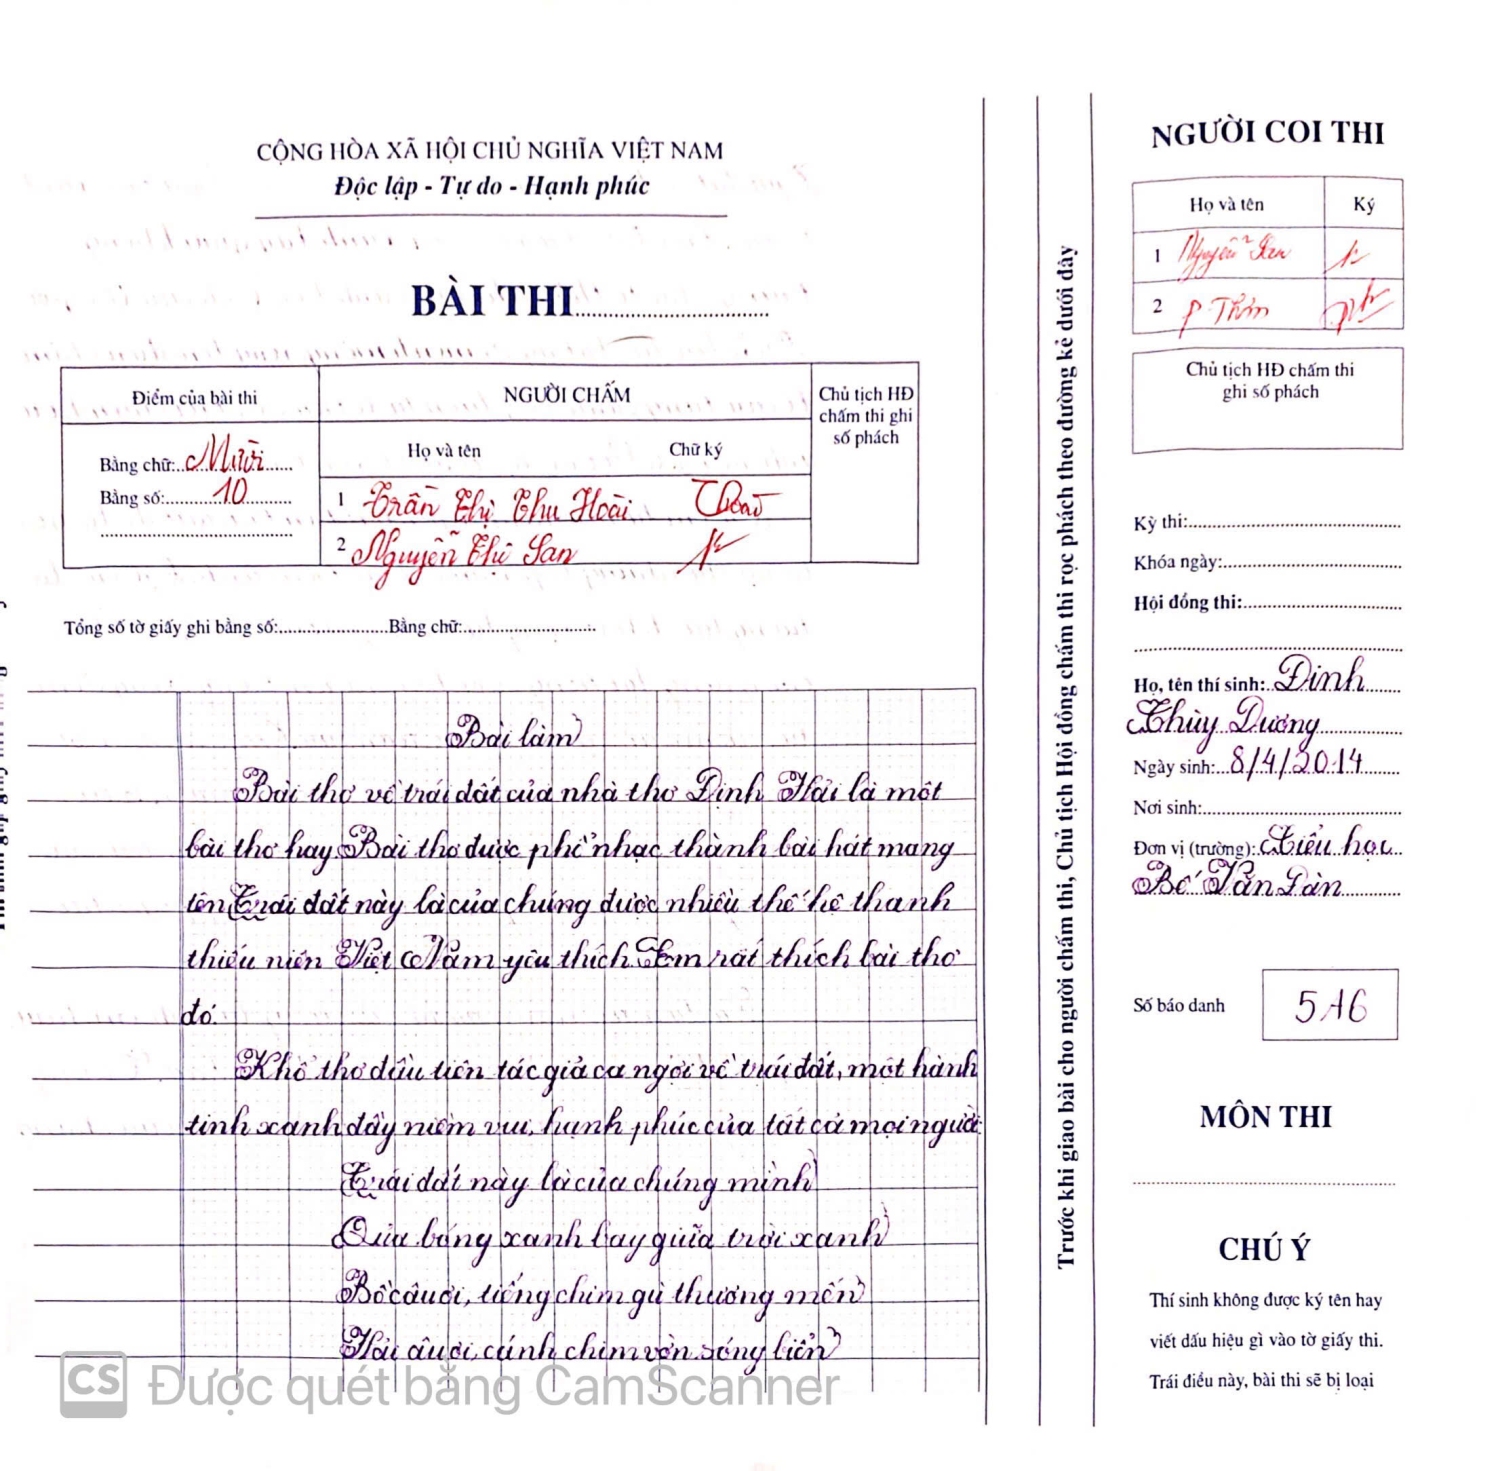 CỘNG HÒA XÃ HỘI CHỦ NGHĨA VIỆT NAM
Độc lập - Tự do - Hạnh phúc
BÀI THI
Điểm của bài thi
NGƯỜI CHẤM
Chủ tịch HĐ
chấm thi ghi
số phách
Họ và tên
Chữ ký
Bằng chữ: Mười
Bằng số: 10
1 Trần Thị Thu Hoài
2 Nguyễn Thị San
Tổng số tờ giấy ghi bằng số: Bằng chữ:
Bài làm
Bài thơ về trái đất của nhà thơ Định Hải là một
bài thơ hay. Bài thơ được phổ nhạc thành bài hát mang
tên Trái đất này là của chúng được nhiều thế hệ thanh
thiếu niên Việt Nam yêu thích. Em rất thích bài thơ
đó.
Khổ thơ đầu tiên tác giả ca ngợi về trái đất, một hành
tinh xanh đầy niềm vui, hạnh phúc của tất cả mọi người:
Trái đất này là của chúng mình
Quả bóng xanh bay giữa trời xanh
Bồ câu ơi, tiếng chim gù thương mến
Hải âu ơi, cánh chim vờn sóng biển
CS Được quét bằng CamScanner
Trước khi giao bài cho người chấm thi, Chủ tịch Hội đồng chấm thi rọc phách theo đường kẻ dưới đây
NGƯỜI COI THI
Họ và tên
Ký
1 Nguyễn San
2 P. Thơm
Chủ tịch HĐ chấm thi
ghi số phách
Kỳ thi:
Khóa ngày:
Hội đồng thi:
Họ, tên thí sinh: Đinh
Thùy Dương
Ngày sinh: 8/4/2014
Nơi sinh:
Đơn vị (trường): Tiểu học
Bế Văn Đàn
Số báo danh
5A6
MÔN THI
CHÚ Ý
Thí sinh không được ký tên hay
viết dấu hiệu gì vào tờ giấy thi.
Trái điều này, bài thi sẽ bị loại